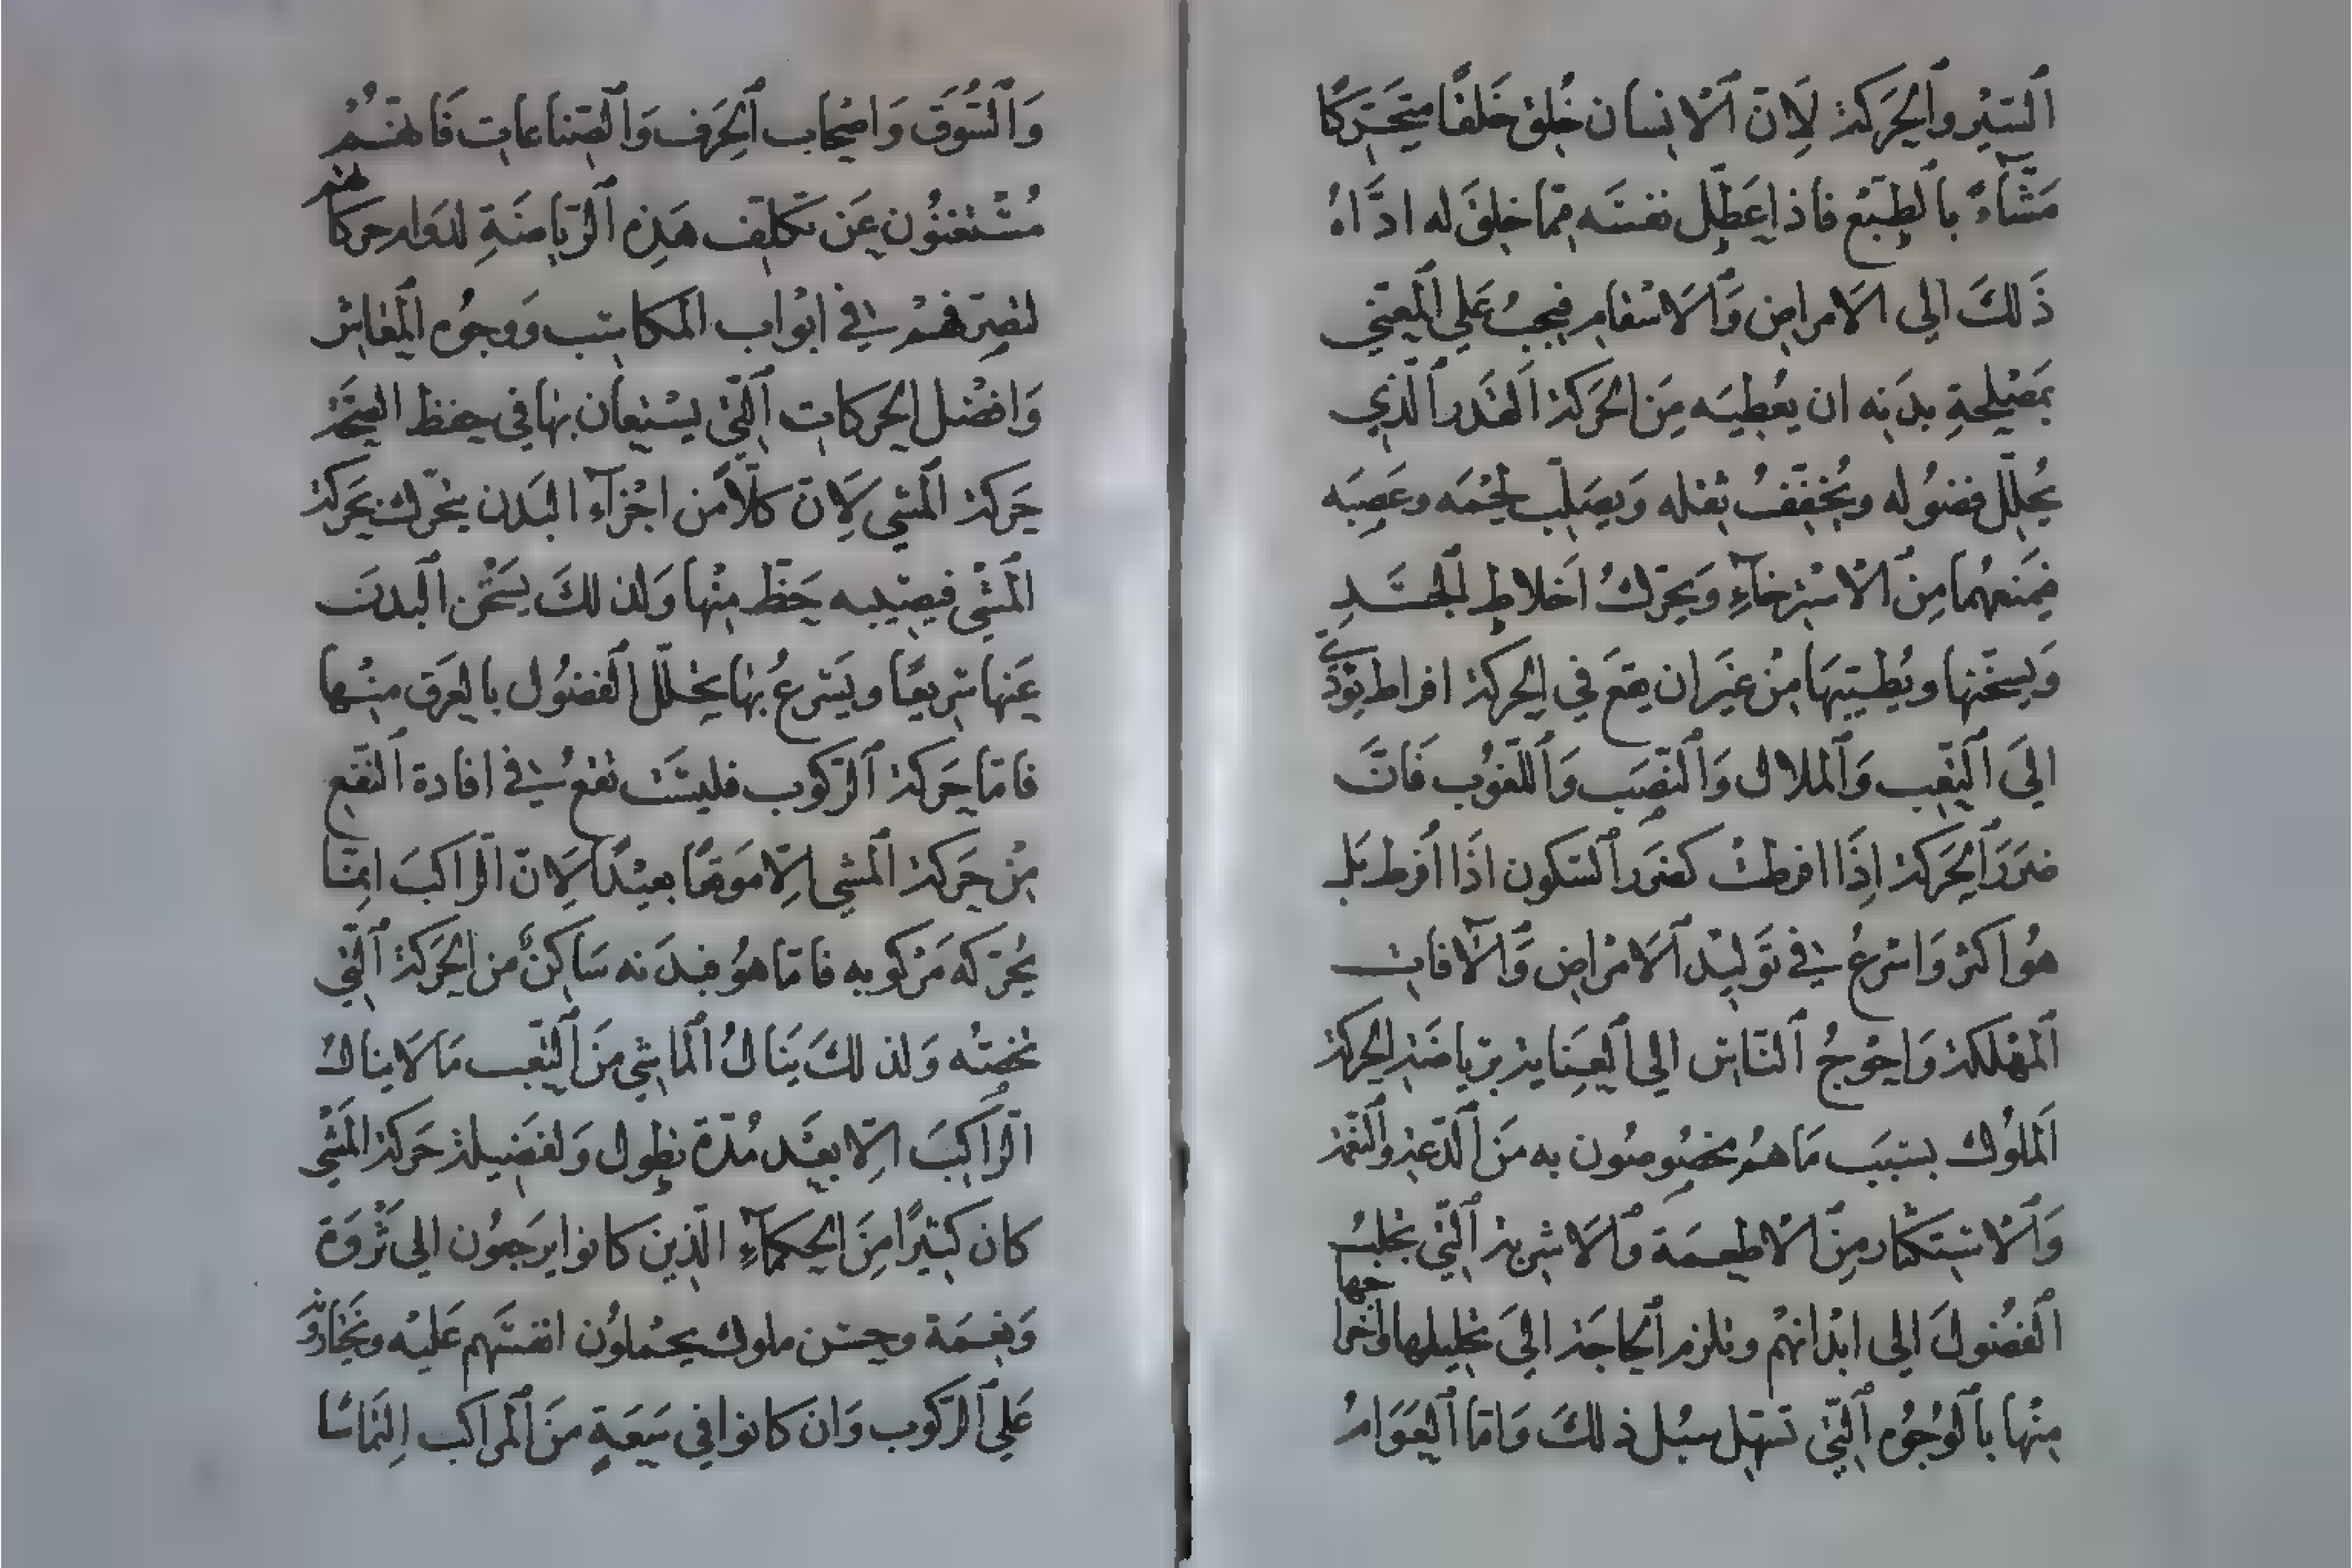 اَلسَّيْرِ وَالحَرَكَةِ لِاَنَّ اَلْاِنسَان خُلِقَ خَلقًا مُتَحَرِّكًا
مَشَّاءً بِالطَبْعِ فاذا عَطَّلَ نفسَه مِمّا خلِقَ له ادَّاهُ
ذَلكَ الي الاَمراض وَاَلاَسْقَام فيجبُ عَلي اَلمعْنِي
بمَصْلحةِ بدَنِه ان يُعْطِيَه مِنَ الحَرَكَة القَدرَ اَلَّذي
يُحَلِّل فضُوله ويُخَفِّفُ ثقله وَيصَلِّب لحْمَه وعَصبَه
فيَمنعهُمَا مِنَ اَلْاسْتِرْخَاءِ وَيحَرِّكُ اَخلاطِ اَلجسَدِ
وَيسَخّنها ويُطَيّبهَا مِنْ غيَرِ ان يقعَ في الحركَة افراط يُؤدِّي
اليَ اَلتّعَب وَاَلملال وَاَلنّصَب وَاَللّغوُب فَانَّ
ضرَرَ اَلحَرَكَة اِذَا افرطتْ كضرَر اَلسّكون اذَا اُفرط بَل
هُو اَكثر وَاسْرعُ في تَوليْد اَلاَمْراض وَاَلْآفات
اَلمهْلكة وَاحْوجُ اَلنّاس الي اَلعِنَاية برِيَاضَة الحركة
اَلملوُك بسَبَب مَا هُمْ مخصُوصُون به مَنَ اَلدّعة وَالنّعْمة
وَاَلْاسْتكثار مِنَ اَلْاطعمَة وَاَلاَشربة اَلّتي تجْلبُ
اَلفضُولَ الي ابْدانهمْ وتلزم اَلحاجَة اليَ تحْليلها واخراجها
مِنْها بِاَلْوُجُوه اَلّتي تسَهّل سبُل ذلكَ وَامّا اَلعَوَامُ
وَاَلسُّوَقَ وَاصْحاب اَلحِرَف وَاَلصّنَاعات فَانهُمْ
مُسْتغنُون عَن تكلّف هَذِه اَلرّيَاضَةِ لدَوام حركاتهم
لتصَرّفهمْ في ابْواب المكاسَب وَوجوُه اَلمعَاش
وَافضْل الحَركات اَلّتي يسْتعَان بهَا في حفظ الصحَّة
حَركَة اَلمشي لِاَنّ كلّاً من اجْزاَء البَدن يتحَرّك بحَرَكة
اَلمَشْي فيصيبه حَظّ منْها وَلذلكَ يسَخْن اَلبدنَ
عَنها سَريعًا ويَسْرعُ بهَا تحلل اَلفضُول بالعَرَق مِنْها
فامّا حَركَة اَلرّكوب فليسَت تقعُ في افادة اَلنّفع
مِنْ حَركَة اَلمشي اِلّا مَوقعًا بعيْدًا لِاَنّ اَلراكبَ انمّا
يُحَرّكه مَرْكوبه فامّا هوُ فبدَنه سَاكنٌ من الحَركَة اَلّتي
تخصّه وَلذلكَ يَنَالُ اَلماشي مَنَ اَلتّعب مَا لاَ ينالُ
اَلرّاَكبَ اِلّا بعَد مُدّة تطول وَلفضَيلة حَركَة المَشْي
كان كثيْرًا مِنَ الحكماءِ الّذينَ كانوا يرجعوُن الي ثَرْوَة
وَنعمَة وحسْن ملوك يحْملوُن انفسَهم عَليْه ويَختَارونه
عَلي اَلرّكوب وَان كانوا في سَعَةٍ مَنَ اَلمراكب اِلتماسًا